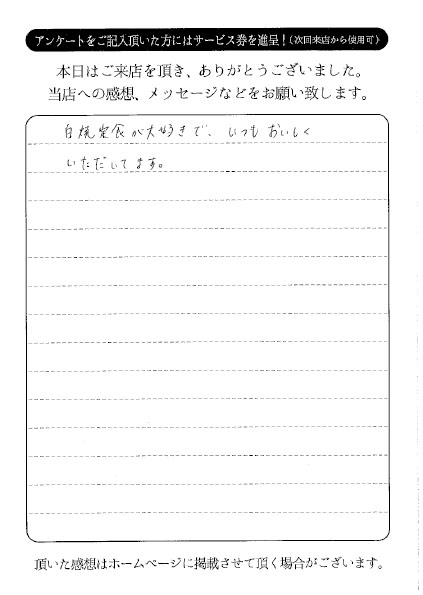 アンケートをご記入頂いた方にはサービス券を進呈！（次回来店から使用可）
本日はご来店を頂き、ありがとうございました。
当店への感想、メッセージなどをお願い致します。
白焼定食が大好きで、いつもおいしく
いただいてます。
頂いた感想はホームページに掲載させて頂く場合がございます。